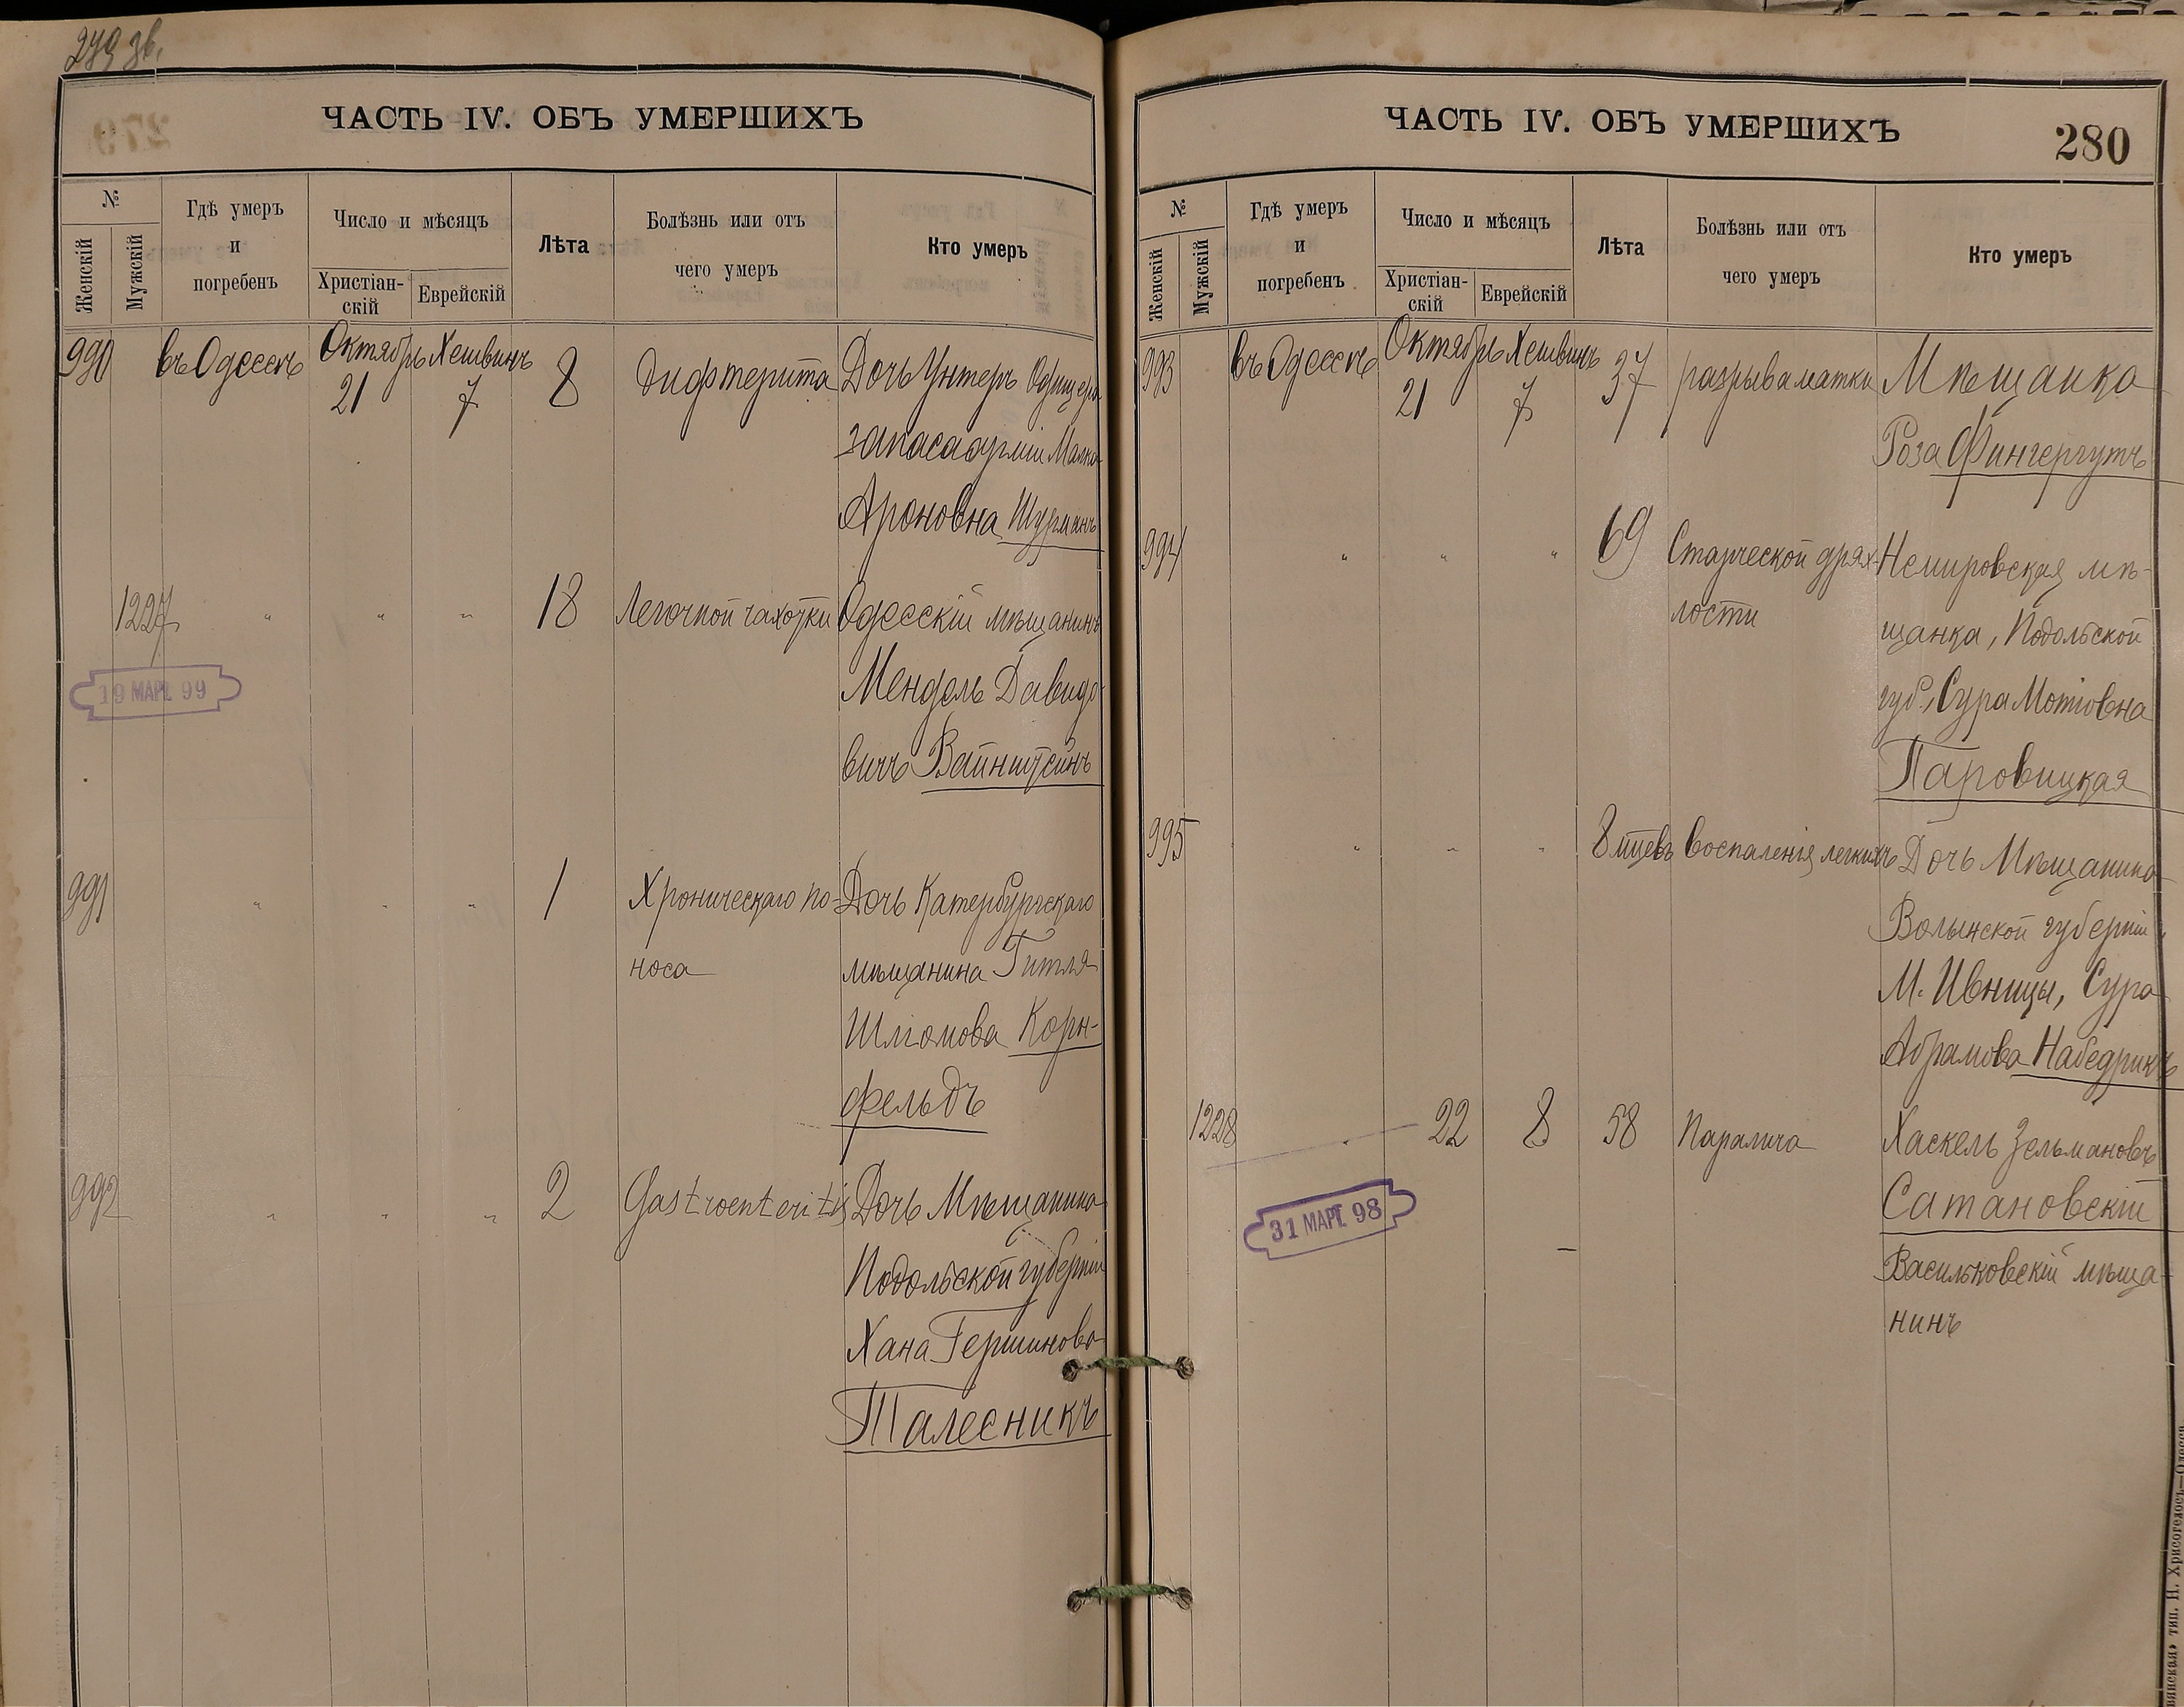 279 зв.
ЧАСТЬ IV. ОБЪ УМЕРШИХЪ
№
Женскій
Мужскій
Гдѣ умеръ
и
погребенъ
Число и мѣсяцъ
Христіан-
скій
Еврейскій
Лѣта
Болѣзнь или отъ
чего умеръ
Кто умеръ
990 въ Одессѣ Октябрь Хешвинъ 8 Дифтерита Дочь Унтеръ Офицера
21 7
запаса арміи Малка
Ароновна Шурманъ
1227 " " " 18 Легочной чахотки Одесскій мѣщанинъ
19 МАРТ. 99
Мендель Давидо-
вичъ Вайнштейнъ
991 " " " 1 Хроническаго по- Дочь Катербургскаго
носа мѣщанина Гитля
Шлiомова Корн-
фельдъ
992 " " " 2 Gastroenteritis Дочь Мѣщанина
Подольской губерніи
Хана Гершинова
Талесникъ
ЧАСТЬ IV. ОБЪ УМЕРШИХЪ
280
№
Женскій
Мужскій
Гдѣ умеръ
и
погребенъ
Число и мѣсяцъ
Христіан-
скій
Еврейскій
Лѣта
Болѣзнь или отъ
чего умеръ
Кто умеръ
993 въ Одессѣ Октябрь Хешвинъ 37 разрыва матки Мѣщанка
21 7
Роза Фингергутъ
994 " " " 69 Старческой дрях- Немировская мѣ-
лости щанка, Подольской
губ., Сура Мотіовна
Паровицкая
995 " " " 8 мцевъ Воспаленія легкихъ Дочь Мѣщанина
Волынской губерніи
М. Ивницы, Сура
Абрамова Набедрикъ
1228 " 22 8 58 Паралича Хаскель Зельмановъ
31 МАРТ. 98
Сатановскій
Васильковскій мѣща-
нинъ
тип. Н. Хрисогелосъ—Одесса